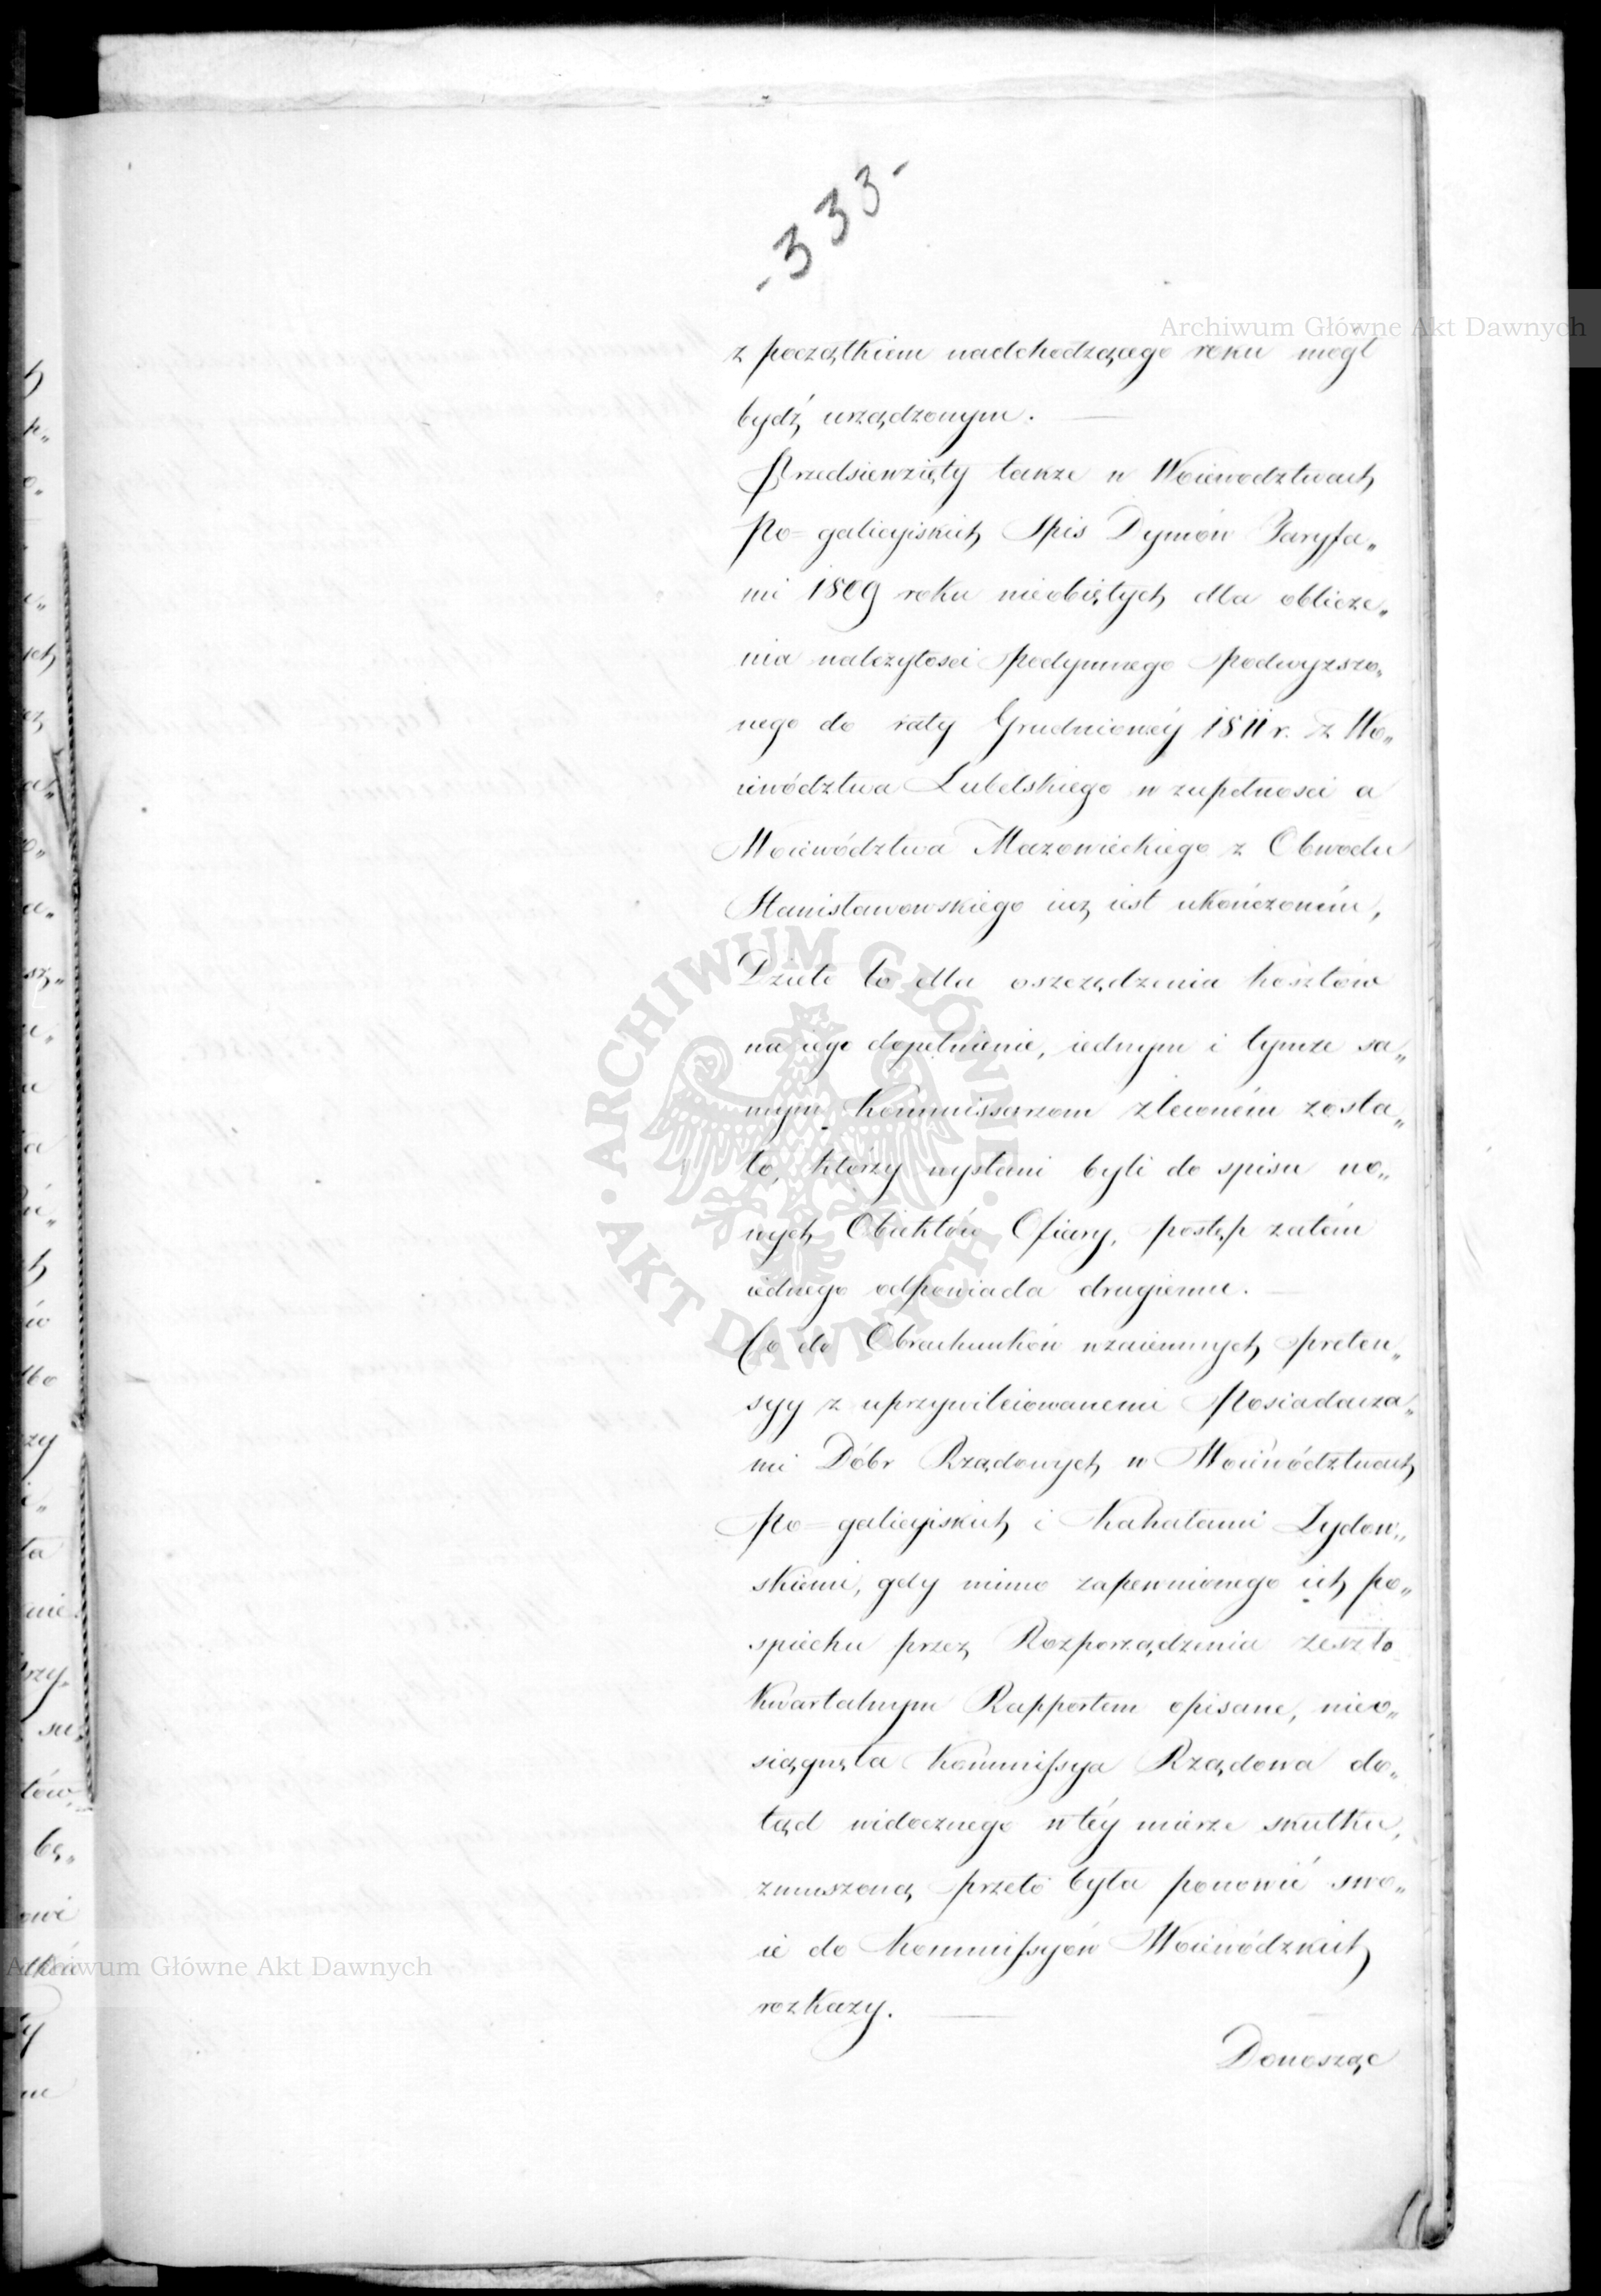 -333-
z początkiem nadchodzącego roku mógł
bydź urządzonym. —
Przedsięwzięty także w Woiewodztwach
Po=galicyiskich Spis Dymów Taryfa„
mi 1809 roku nieobiętych dla oblicze„
nia należytości Podymnego Podwyższo„
nego do raty Grudniowéy 1811 r. z Wo„
iewództwa Lubelskiego w zupełności a
Woiewództwa Mazowieckiego z Obwodu
Stanisławowskiego iuż iest ukończoném,
Dzieło to dla oszczędzenia kosztów
na iego dopełnienie, iednym i tymże sa„
mym Kommissarzom zleconém zosta„
ło, którzy wysłani byli do spisu no„
wych Obiektów Ofiary, postęp zatém
iednego odpowiada drugiemu. —
Co do Obrachunków wzaiemnych preten„
syy z uprzywileiowanemi Posiadacza„
mi Dóbr Rządowych w Woiewództwach
Po=galicyiskich i Kahałami Żydow„
skiemi, gdy mimo zapewnionego ich po„
spiechu przez Rozporządzenia zeszło
Kwartalnym Rapportem opisane, nieo„
siągnęła Kommissya Rządowa do„
tąd widocznego w téy mierze skutku,
zmuszoną przeto była ponowić swo„
ie do Kommissyów Woiewódzkich
rozkazy. —
Donosząc
Archiwum Główne Akt Dawnych
ARCHIWUM GŁÓWNE · AKT DAWNYCH ·
Archiwum Główne Akt Dawnych